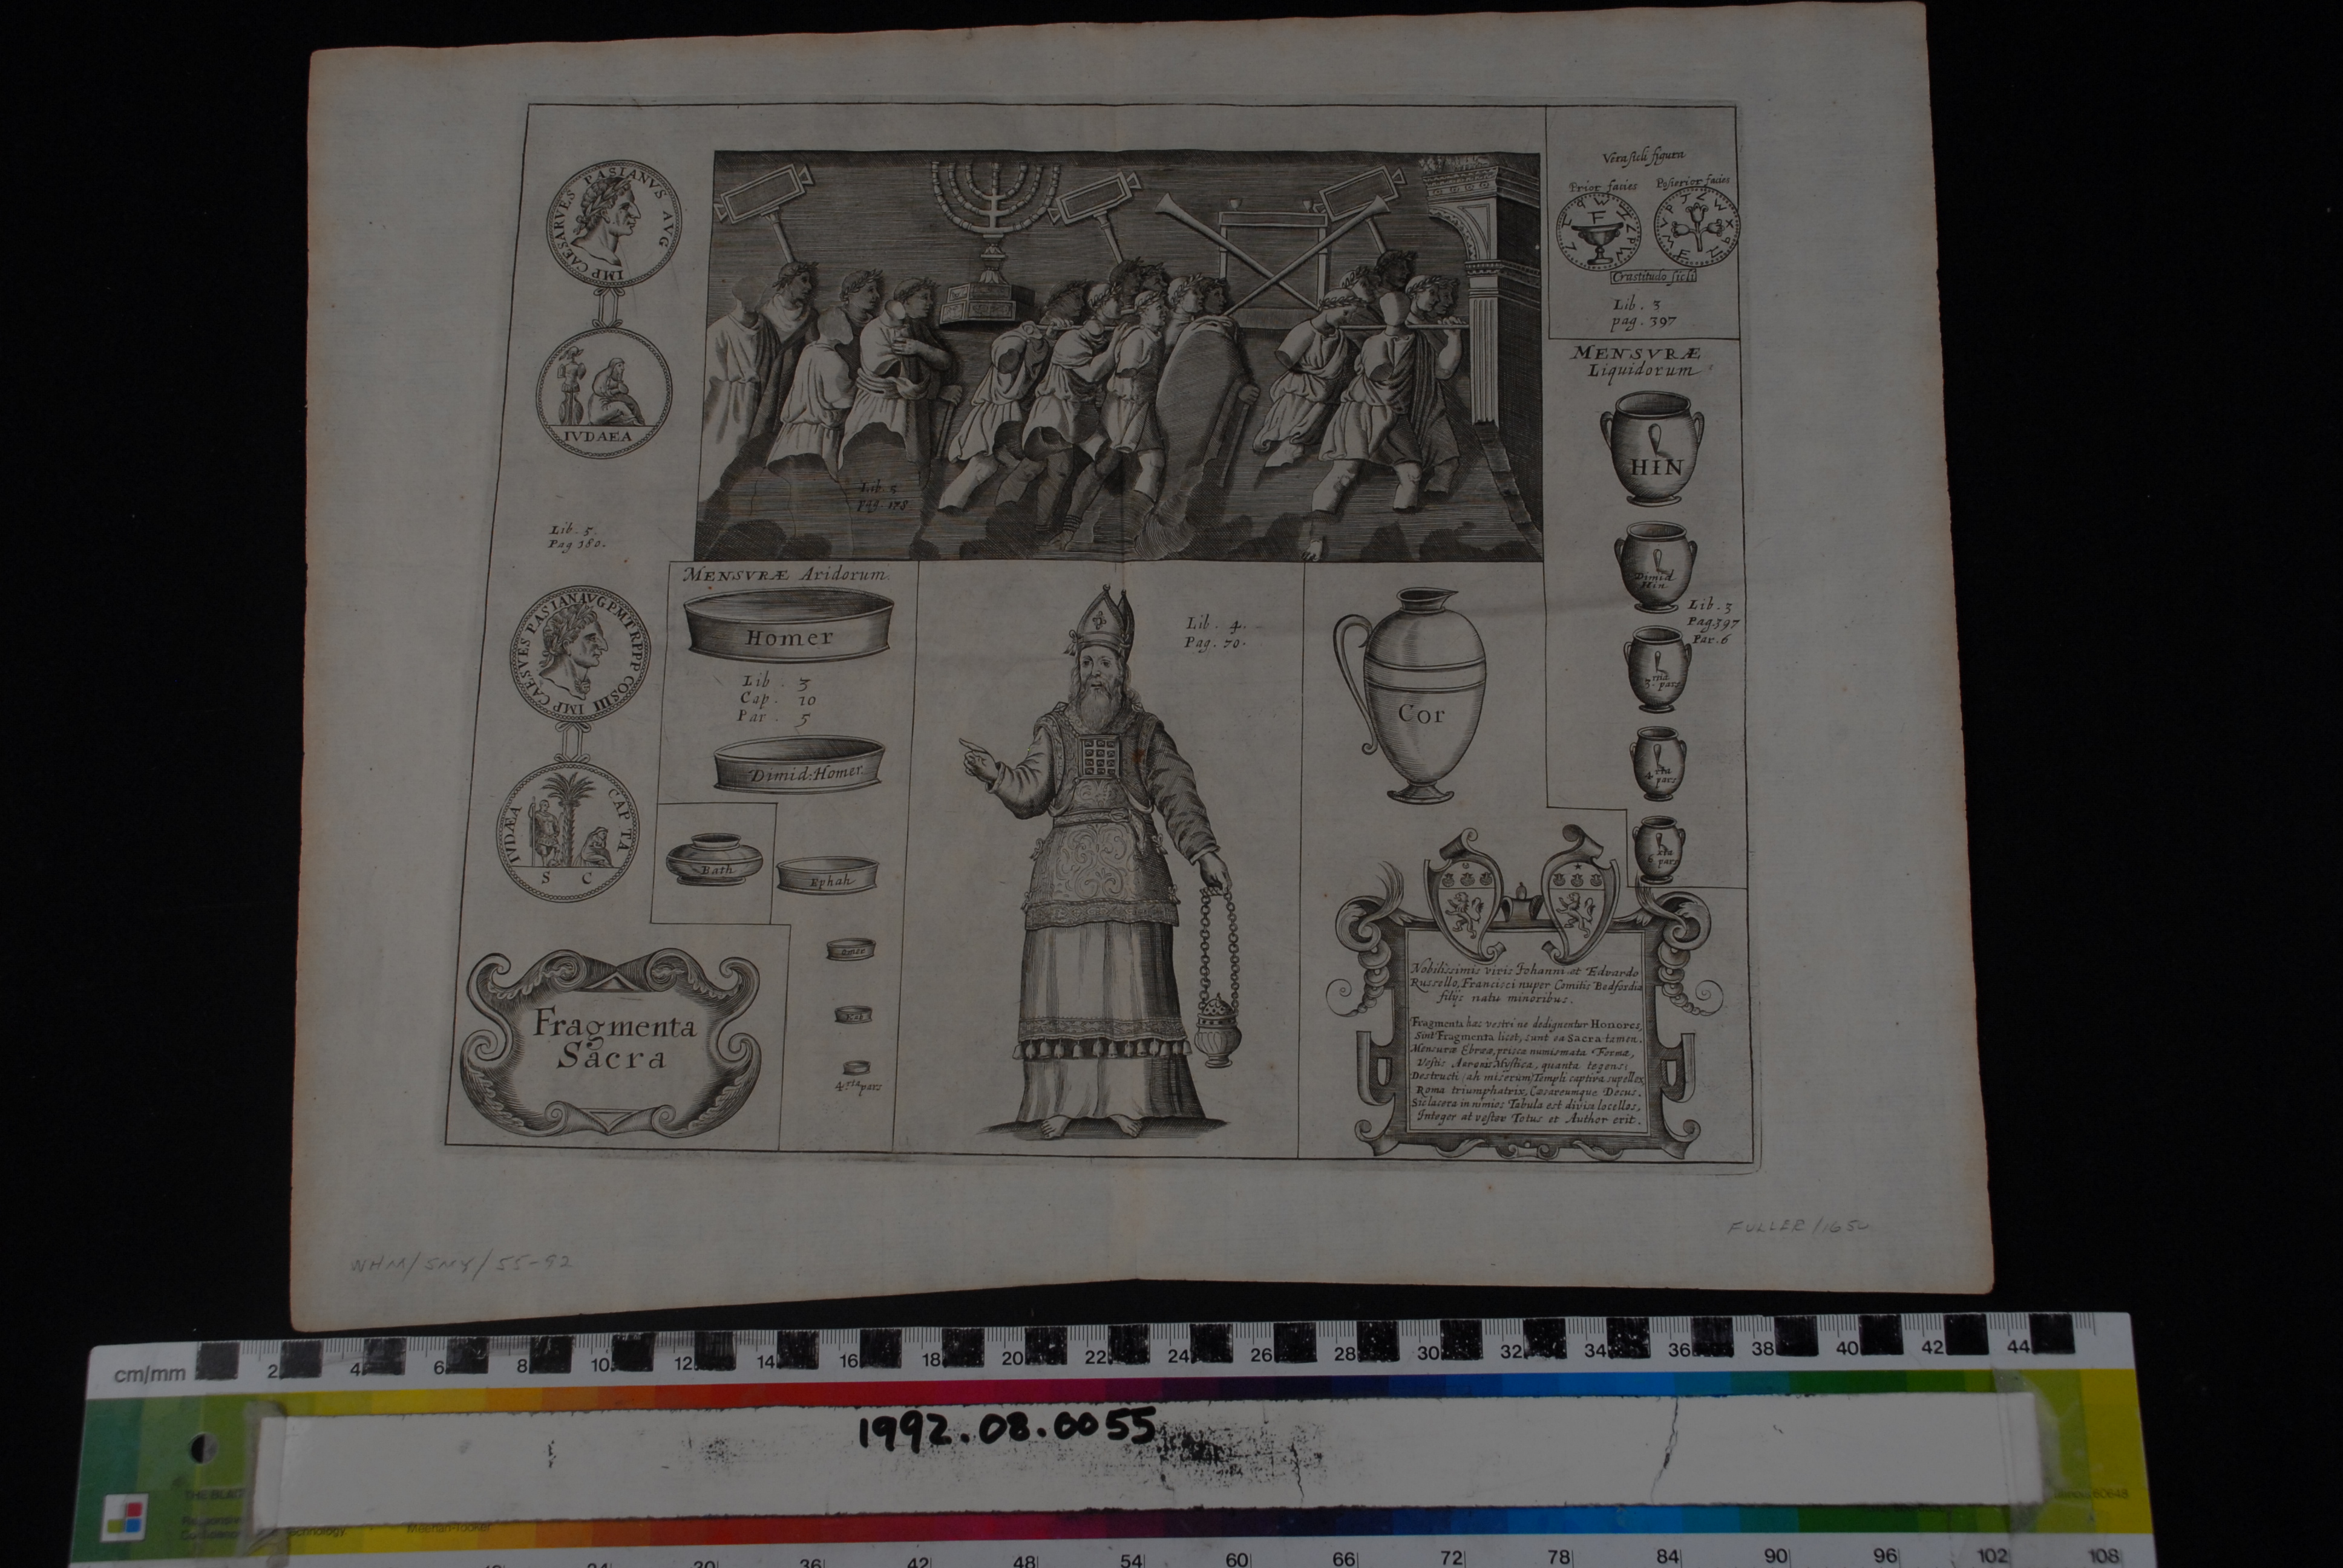 IMP CAESARVES PASIANVS AVG
IVDAEA
Lib. 5.
Pag 380.
IMP CAESVES PASIANAVGPMTRPPP COSIII
IVDÆA CAPTA
S C
Fragmenta
Sacra
Lib. 5
pag. 178
Vera sicli figura
Prior facies
Posterior facies
Crastitudo sicli
Lib. 3
pag. 397
MENSVRÆ
Liquidorum
HIN
Dimid
Hin
Lib. 3
Pag. 397
Par. 6
3. tia pars
4 rta pars
6 xta pars
MENSVRÆ Aridorum.
Homer
Lib. 3
Cap. 10
Par. 5
Dimid: Homer.
Bath
Ephah
4 rta pars
Lib. 4.
Pag. 70.
Cor
Nobilissimis viris Iohanni et Edvardo
Russello, Francisci nuper Comitis Bedfordiæ
filijs natu minoribus.
Fragmenta hæc vestri ne dedignentur Honores,
Sint Fragmenta licet, sunt ea Sacra tamen.
Mensuræ Ebrææ, prisca numismata Formæ,
Vestis Aaronis Mystica, quanta tegens!
Destructi (ah miserum) Templi captiva supellex,
Roma triumphatrix, Cæsareumque Decus.
Sic lacera in nimios Tabula est divisa locellos,
Integer at vester Totus et Author erit.
WHM/SMY/55-92
FULLER/1650
cm/mm 2 4 6 8 10 12 14 16 18 20 22 24 26 28 30 32 34 36 38 40 42 44
1992.08.0055
42 48 54 60 66 72 78 84 90 96 102 108